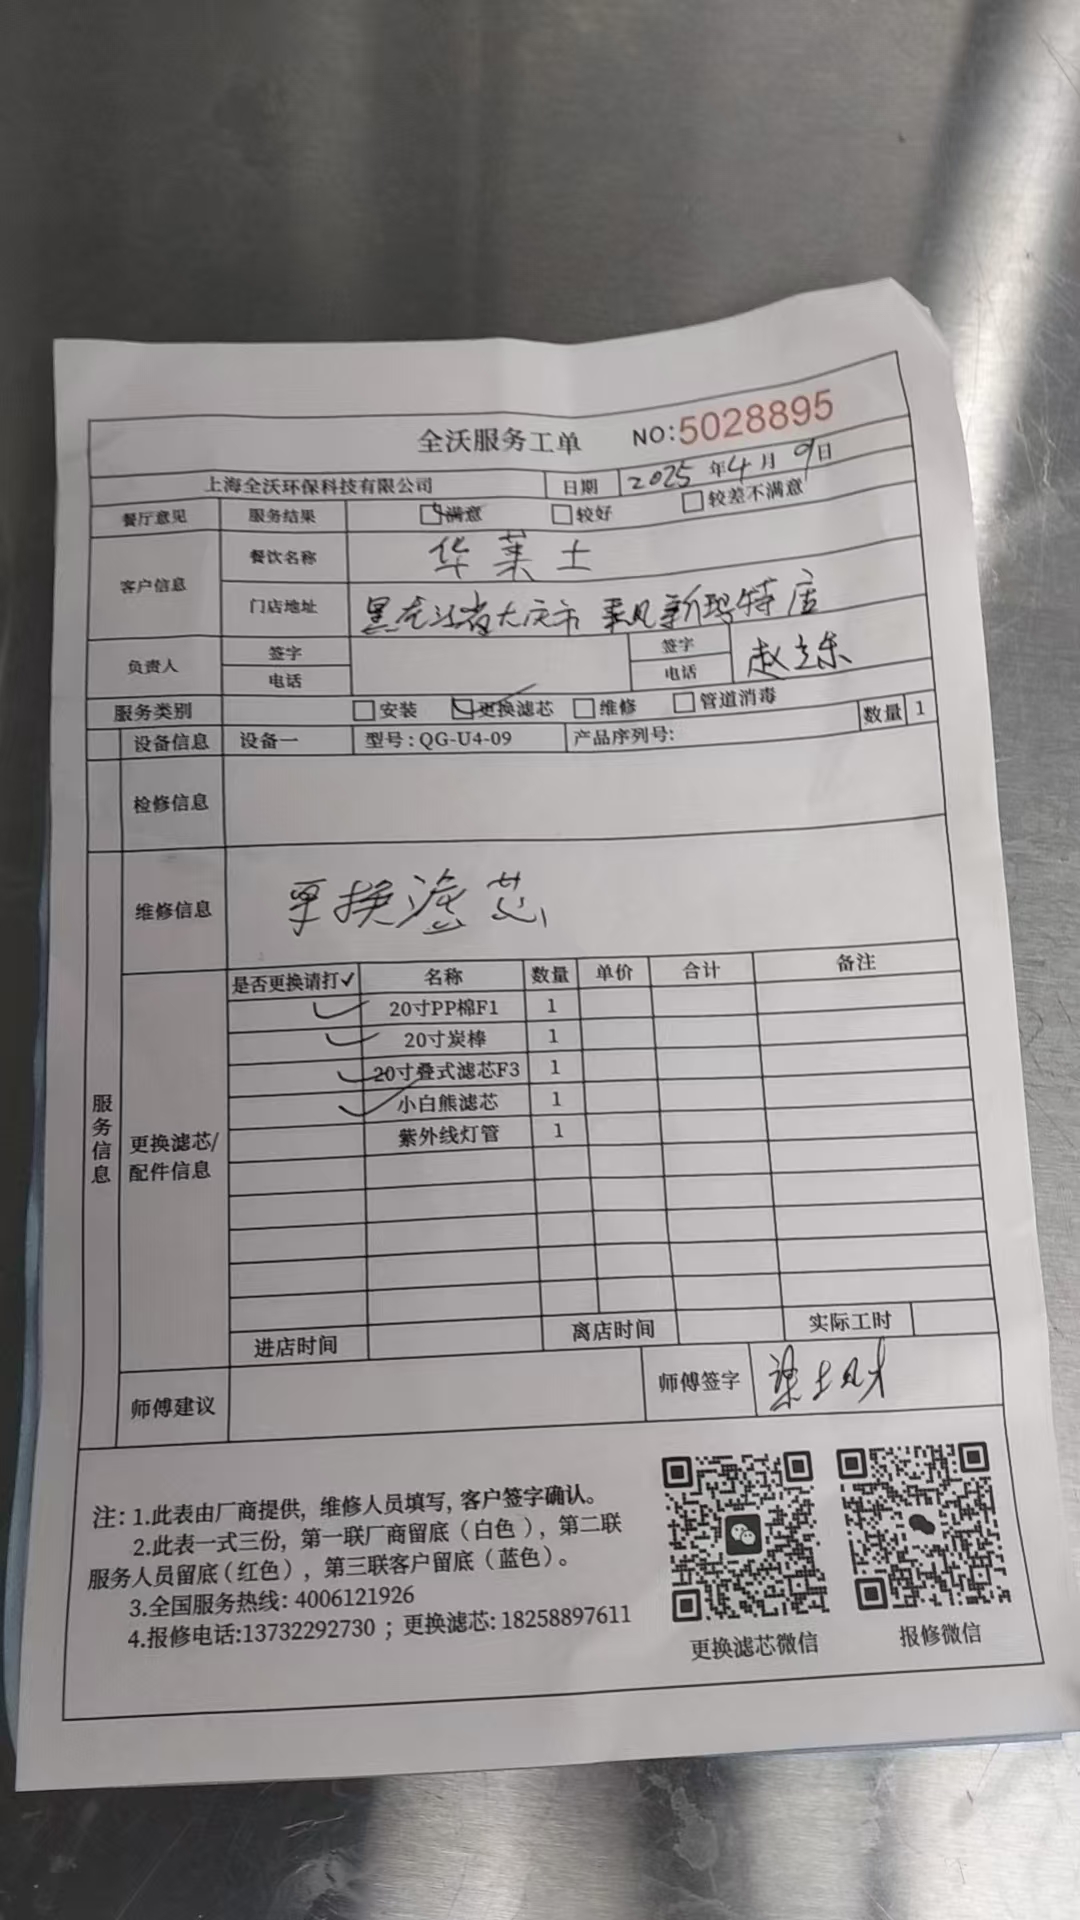 全沃服务工单 NO:5028895
上海全沃环保科技有限公司 日期 2025年4月9日
餐厅意见 服务结果 满意 较好 较差不满意
客户信息 餐饮名称 华莱士
门店地址 黑龙江省大庆市乘风新玛特店
负责人 签字 签字 赵立东
电话 电话
服务类别 安装 更换滤芯 维修 管道消毒
设备信息 设备一 型号:QG-U4-09 产品序列号: 数量 1
检修信息
维修信息 更换滤芯
服务信息
更换滤芯/配件信息
是否更换请打✓ 名称 数量 单价 合计 备注
✓ 20寸PP棉F1 1
✓ 20寸炭棒 1
✓ 20寸叠式滤芯F3 1
✓ 小白熊滤芯 1
紫外线灯管 1
进店时间 离店时间 实际工时
师傅建议 师傅签字
注: 1.此表由厂商提供, 维修人员填写, 客户签字确认。
2.此表一式三份, 第一联厂商留底(白色), 第二联
服务人员留底(红色), 第三联客户留底(蓝色)。
3.全国服务热线: 4006121926
4.报修电话:13732292730 ; 更换滤芯: 18258897611
更换滤芯微信 报修微信